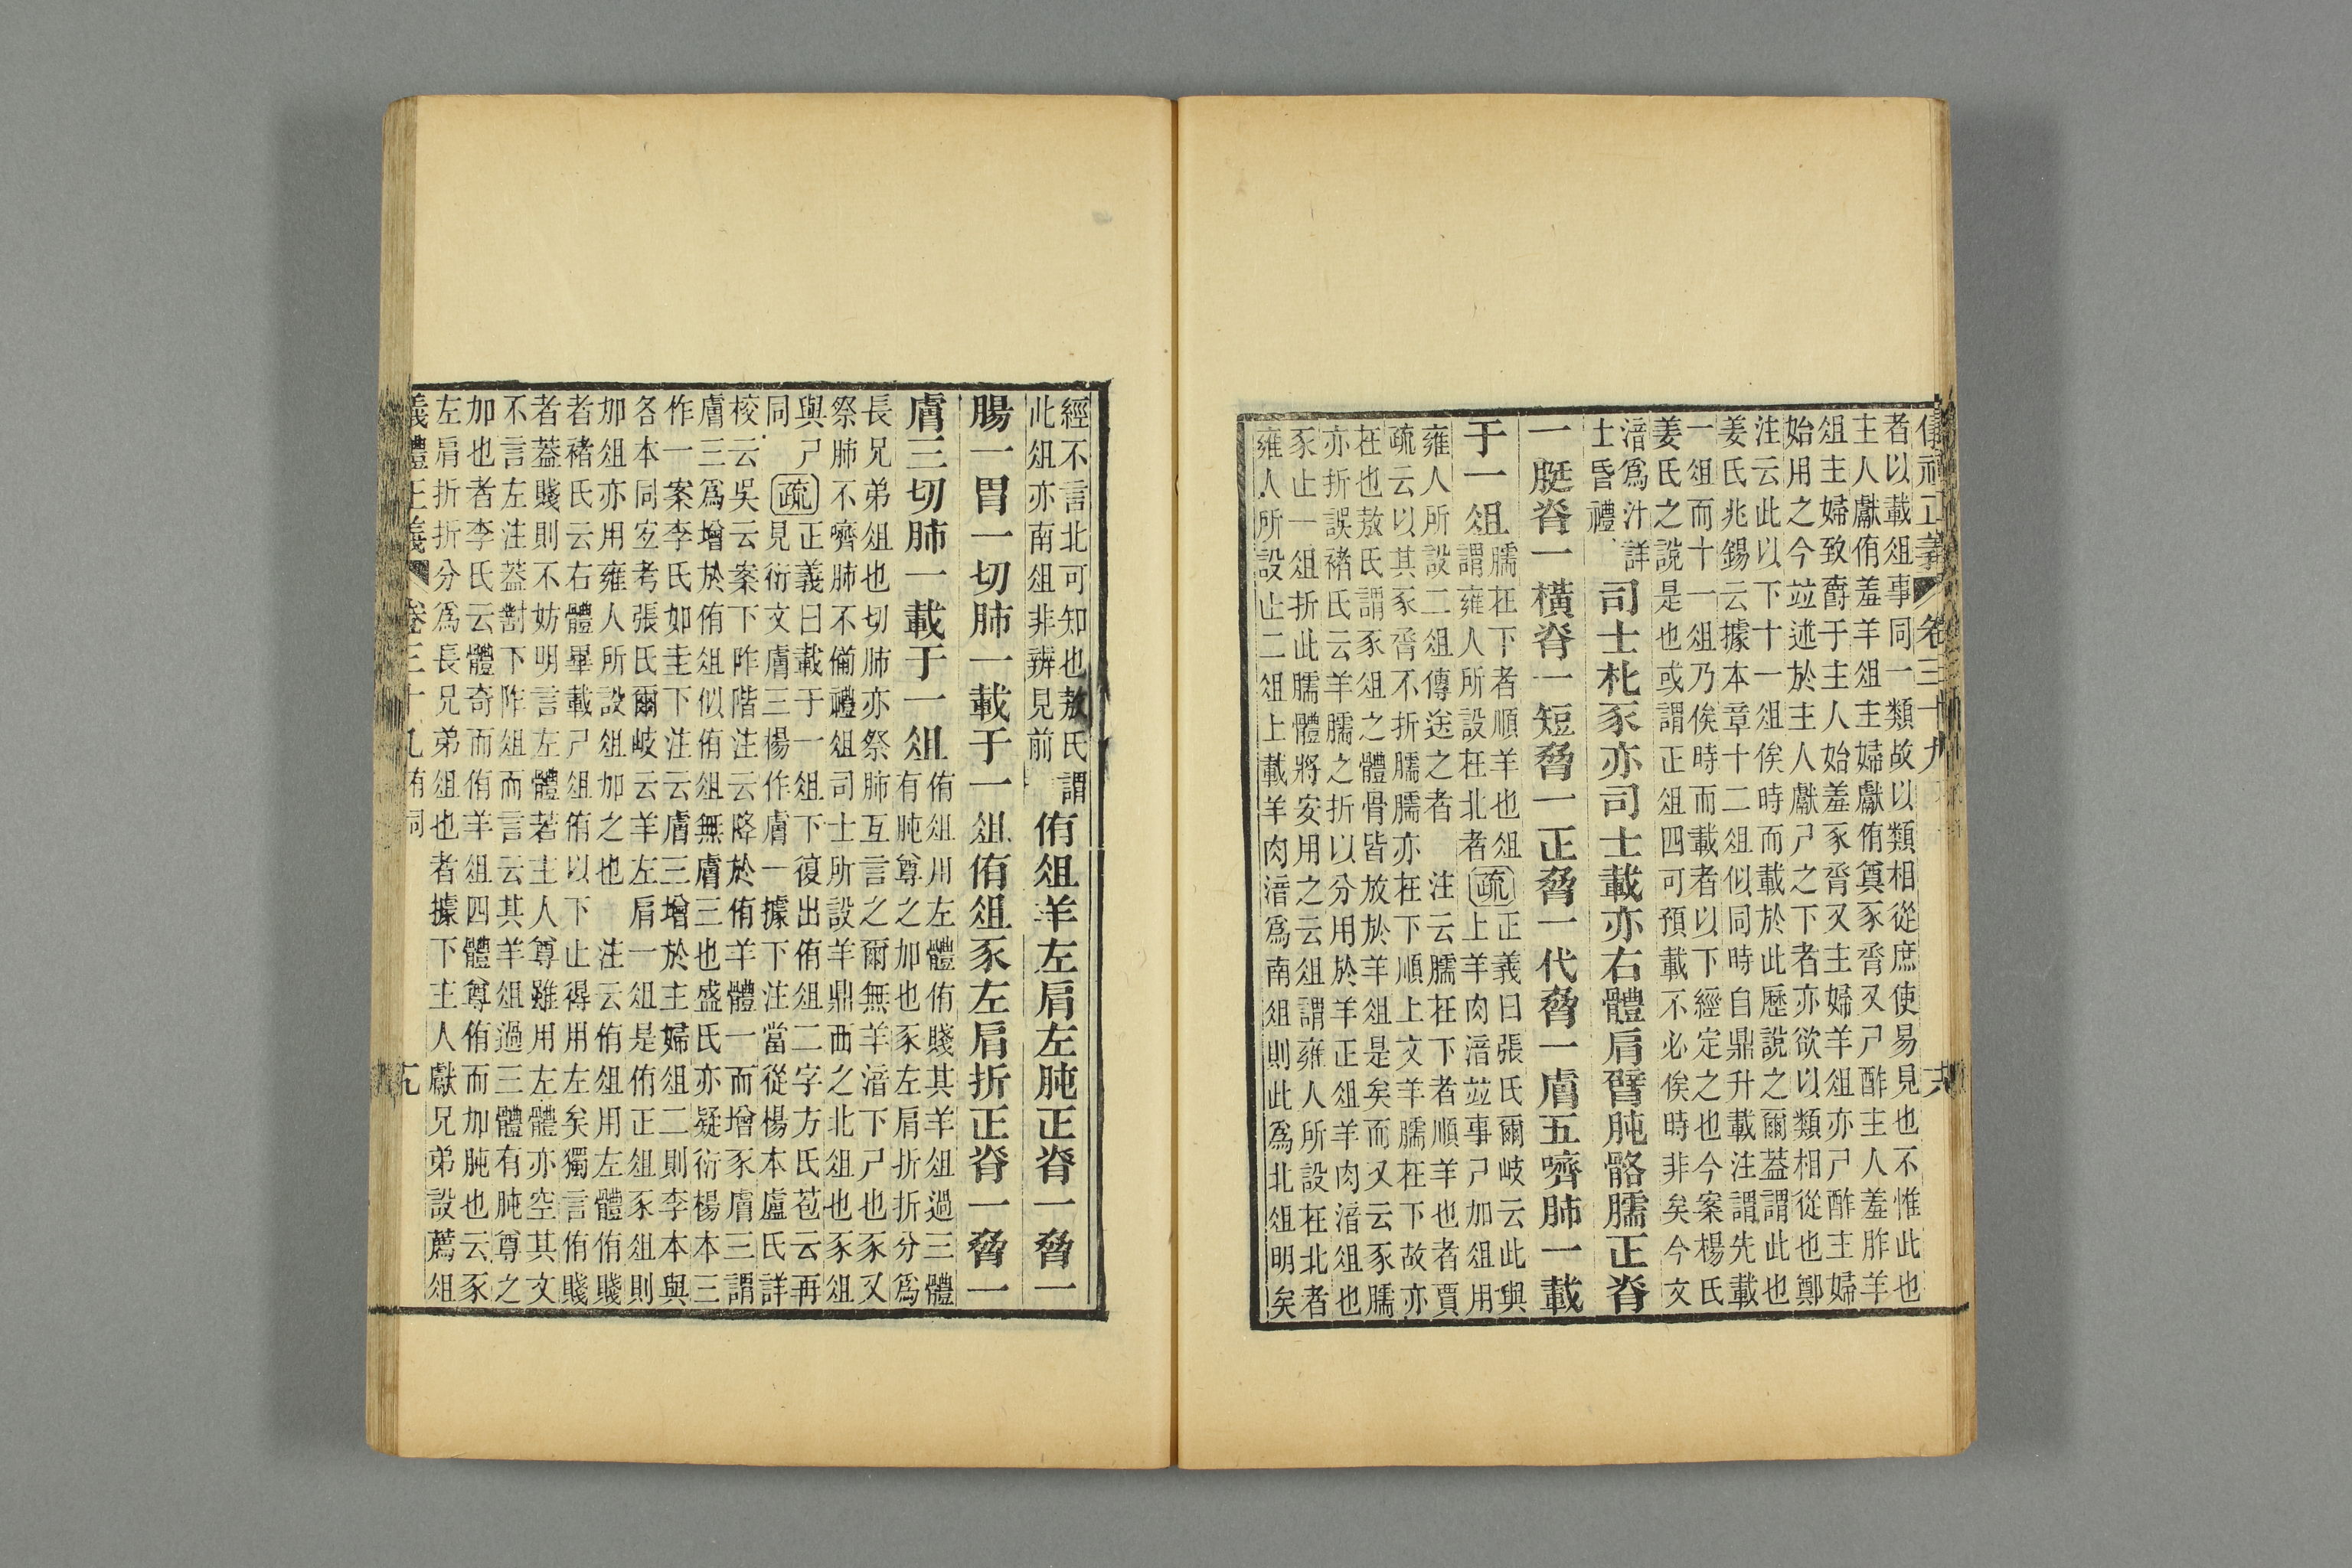 儀禮正義 卷三十九
者以載俎事同一類故以類相從庶使易見也不惟此也
主人獻侑羞羊俎主婦獻侑奠豕脀又尸酢主人羞胙羊
俎主婦致爵于主人始羞豕脀又主婦羊俎亦尸酢主婦
始用之今竝述於主人獻尸之下者亦欲以類相從也鄭
注云此以下十一俎俟時而載於此歷說之爾蓋謂此也
姜氏兆錫云據本章十二俎似同時自鼎升載注謂先載
一俎而十一俎乃俟時而載者以下經定之也今案楊氏
姜氏之說是也或謂正俎四可預載不必俟時非矣今文
湆爲汁詳
士昏禮
司士朼豕亦司士載亦右體肩臂肫骼臑正脊
一脡脊一橫脊一短脅一正脅一代脅一膚五嚌肺一載
于一俎
臑在下者順羊也俎
謂雍人所設在北者
疏
正義曰張氏爾岐云此與
上羊肉湆竝事尸加俎用
雍人所設二俎傳送之者 注云臑在下者順羊也者賈
疏云以其豕脀不折臑臑亦在下順上文羊臑在下故亦
在也敖氏謂豕俎之體骨皆放於羊俎是矣而又云豕臑
亦折誤褚氏云羊臑之折以分用於羊正俎羊肉湆俎也
豕止一俎折此臑體將安用之云俎謂雍人所設在北者
雍人所設止二俎上載羊肉湆爲南俎則此爲北俎明矣
經不言北可知也敖氏謂
此俎亦南俎非辨見前
侑俎羊左肩左肫正脊一脅一
腸一胃一切肺一載于一俎侑俎豕左肩折正脊一脅一
膚三切肺一載于一俎
侑俎用左體侑賤其羊俎過三體
有肫尊之加也豕左肩折折分爲
長兄弟俎也切肺亦祭肺互言之爾無羊湆下尸也豕又
祭肺不嚌肺不備禮俎司士所設羊鼎西之北俎也豕俎
與尸
同
疏
正義曰載于一俎下復出侑俎二字方氏苞云再
見衍文膚三楊作膚一據下注當從楊本盧氏詳
校云吳云案下阼階注云降於侑羊體一而增豕膚三謂
膚三爲增於侑俎似侑俎無膚三也盛氏亦疑衍楊本三
作一案李氏如圭下注云膚三增於主婦俎二則李本與
各本同宓考張氏爾岐云羊左肩一俎是侑正俎豕俎則
加俎亦用雍人所設俎加之也 注云侑俎用左體侑賤
者褚氏云右體畢載尸俎侑以下止得用左矣獨言侑賤
者蓋賤則不妨明言左體若主人尊雖用左體亦空其文
不言左注蓋對下阼俎而言云其羊俎過三體有肫尊之
加也者李氏云體奇而侑羊俎四體尊侑而加肫也云豕
左肩折折分爲長兄弟俎也者據下主人獻兄弟設薦俎